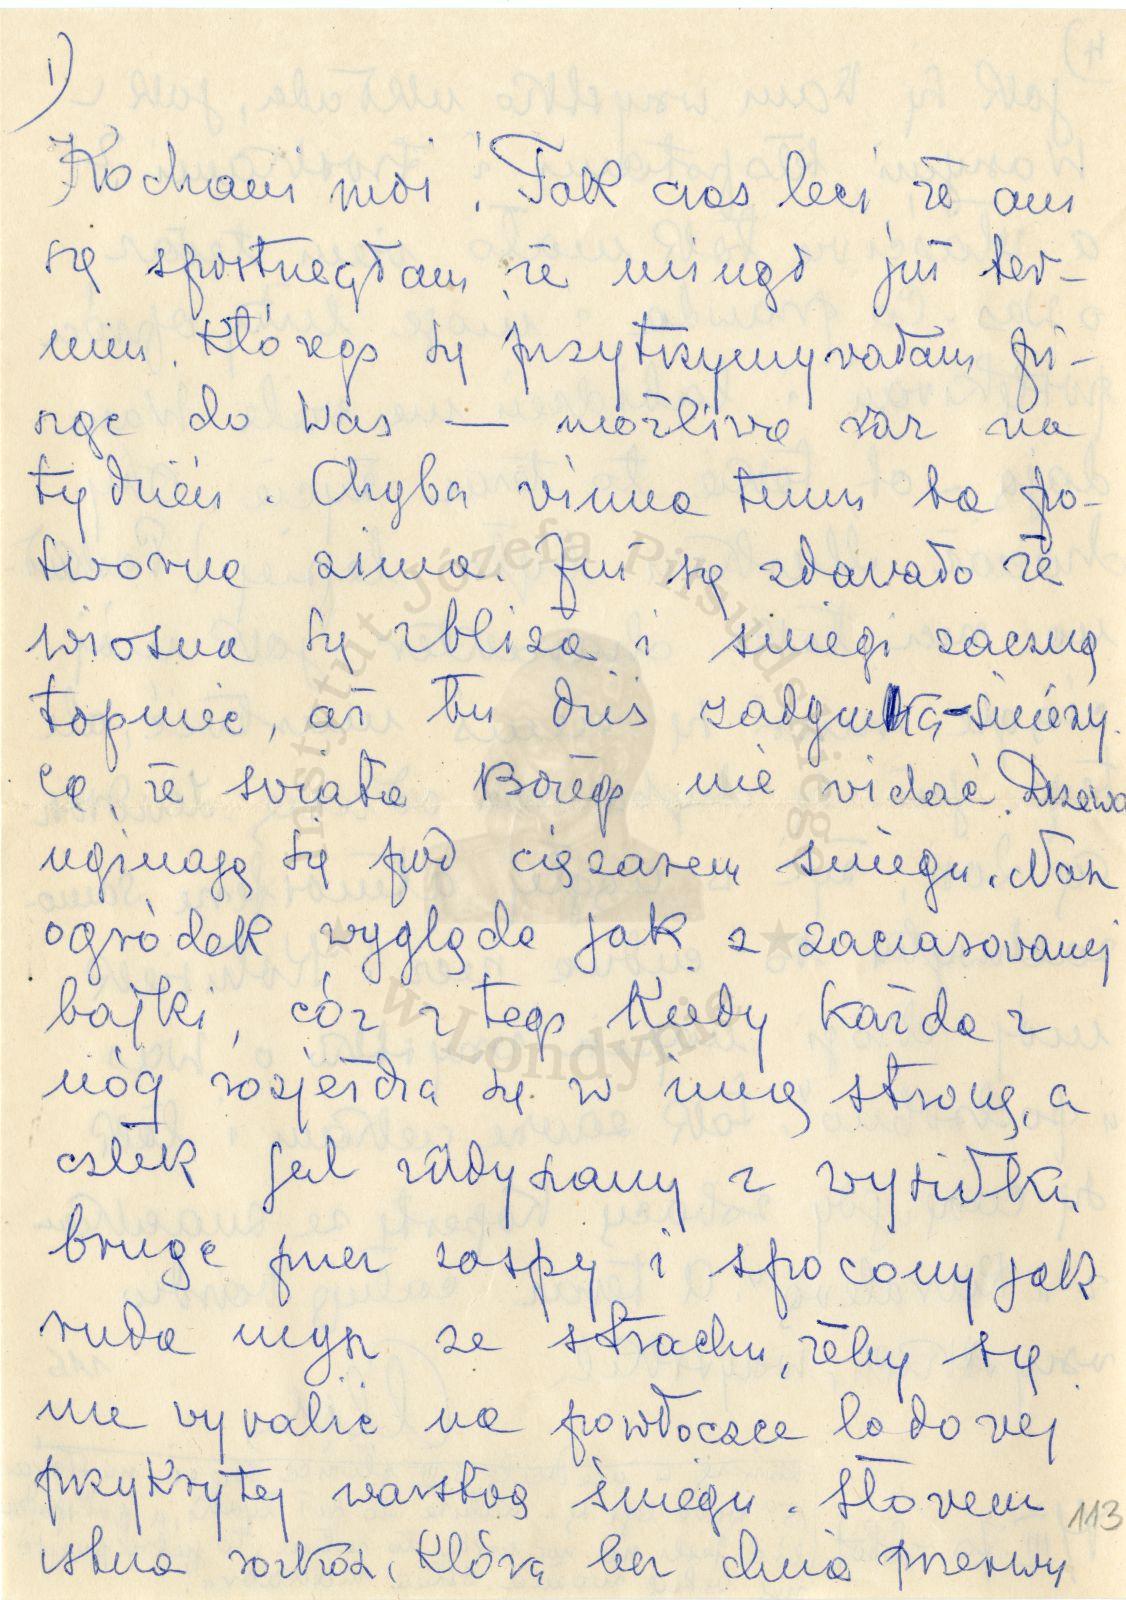 1)
Kochani moi! Tak czas leci, że ani
się spostrzegłam, że minął już ter-
min, którego się przytrzymywałam pi-
sząc do Was — możliwie raz na
tydzień. Chyba winna temu ta po-
tworna zima. Już się zdawało że
wiosna się zbliża i śniegi zaczną
topnieć, aż tu dziś zadymka śnieży-
ca, że świata Bożego nie widać. Drzewa
uginają się pod ciężarem śniegu. Nasz
ogródek wygląda jak z zaczarowanej
bajki, cóż z tego kiedy każda z
nóg rozjeżdża się w inną stronę, a
człek jest zadyszany z wysiłku
brnąc przez zaspy i spocony jak
ruda mysz ze strachu, żeby się
nie wywalić na powłoczce lodowej
przykrytej warstwą śniegu. Słowem
istna rozkosz, którą bez dnia przerwy
113
Instytut Józefa Piłsudskiego
w Londynie